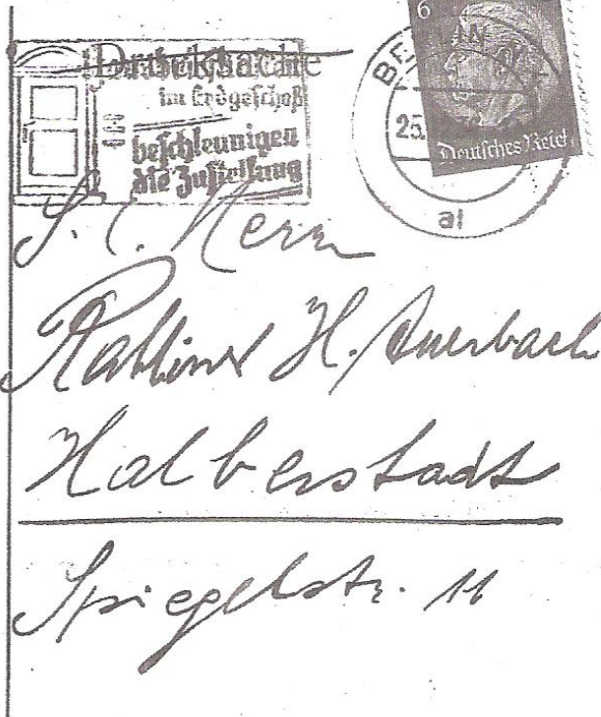 6
Drucksache
BERLIN
im Erdgeschoß
beschleunigen
die Zustellung
25.
Deutsches Reich
al
S. E. Herrn
Rabbiner H. Auerbach
Halberstadt
Spiegelstr. 11